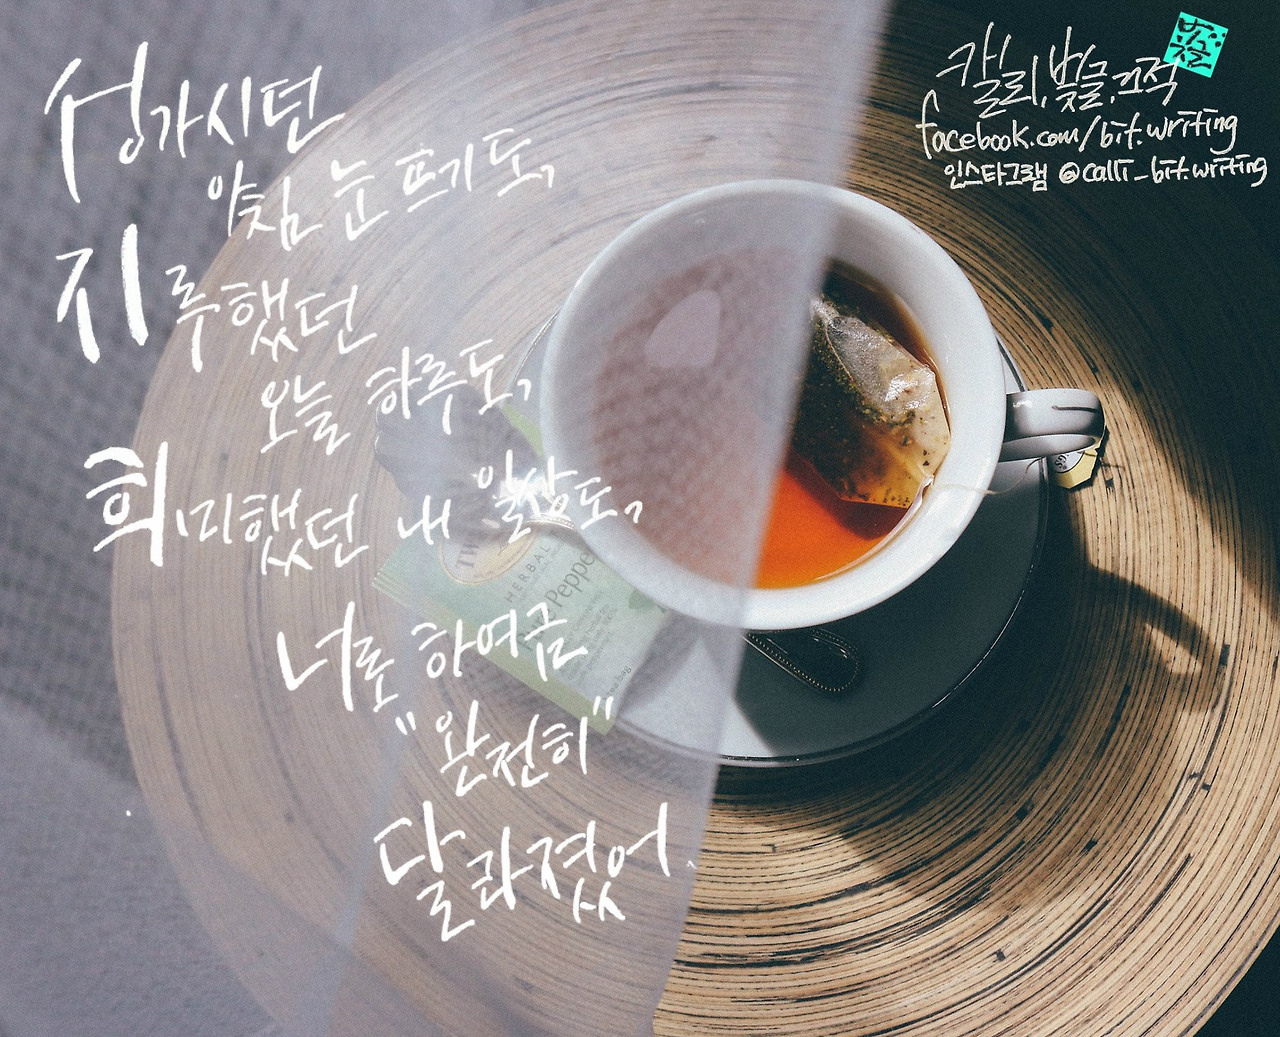 성가시던
아침 눈 뜨기도,
지루했던
오늘 하루도,
희미했던 내 일상도,
너로 하여금
"완전히"
달라졌어.
캘리, 빛글, 끄적
빛글
facebook.com/bit.writing
인스타그램 @calli_bit.writing
TW
HERBAL
Pure Peppe
tea bag